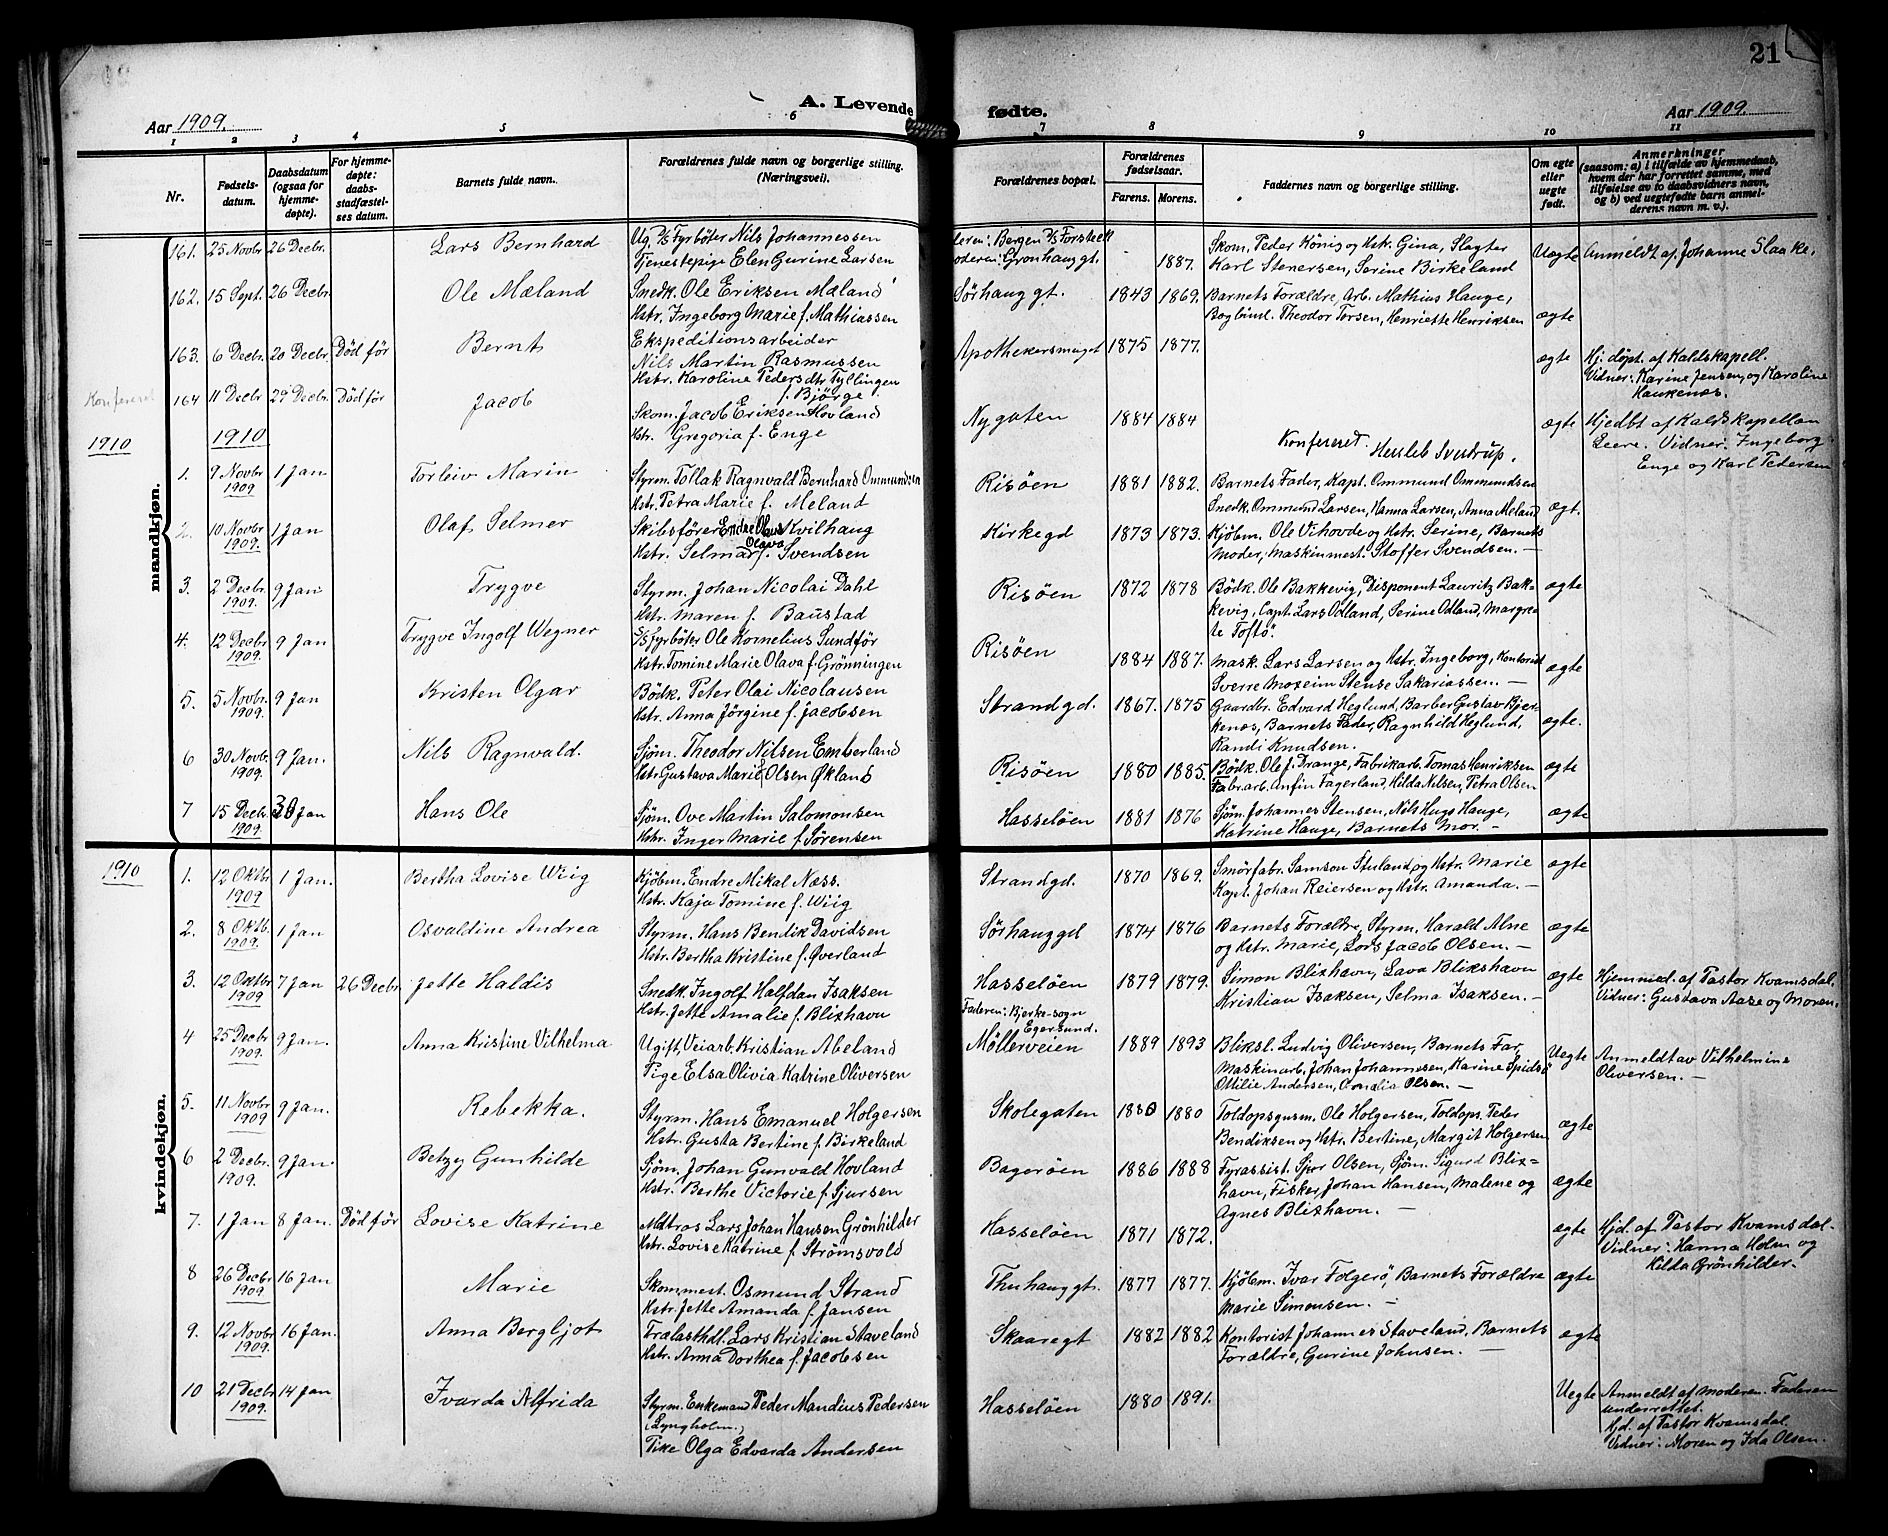 21
A. Levende fødte.
Aar 1909.
Aar 1909.
1 2 3 4 5 6 7 8 9 10 11
Nr.
Fødsels-datum.
Daabsdatum (ogsaa for hjemme-døpte).
For hjemme-døpte: daabs-stadfæstel-ses datum.
Barnets fulde navn.
Forældrenes fulde navn og borgerlige stilling. (Næringsvei).
Forældrenes bopæl.
Forældrenes fødselsaar.
Farens. Morens.
Faddernes navn og borgerlige stilling.
Om egte eller uegte født.
Anmerkninger (saasom: a) i tilfælde av hjemmedaab, hvem der har forrettet samme, med tilføielse av to daabsvidners navn, og b) ved uegtefødte barn anmel-derens navn m. v.).
mandkjøn.
161. 25 Novbr 26 Decbr. Lars Bernhard
Ug. D/S Fyrböter Nils Johannessen
Tjenestepige Elen Gurine Larsen
deren: Bergen D/S Forsteck
oderen: Grönhauggt. 1887.
Skom. Peder König og Hstr. Gina, Slagter
Karl Stenersen, Serine Birkeland
Uegte Anmeldt af Johanne Slaake.
162. 15 Sept. 26 Decbr. Ole Mæland
Snedk. Ole Eriksen Mæland
Hstr. Ingeborg Marie f. Mathiassen
Sørhauggt. 1843 1869.
Barnets Forældre, Arb. Mathias Hauge,
Bogbind. Theodor Torsen, Henriette Henriksen
ægte
163. 6 Decbr. 20 Decbr. Død før Bernt
Ekspeditionsarbeider
Nils Martin Rasmussen
Hstr. Karoline Pedersdtr Tyllingen
Apothekersmuget 1875 1877.
ægte Hj. døpt. af Kaldskapell.
Vidner: Karine Jensen, og Karoline
Haukenæs.
Konfereret
164 11 Decbr 29 Decbr. Død før Jacob
f. Bjørge.
Skom. Jacob Eriksen Hovland
Hstr. Gregoria f. Enge
Nygaten 1884 1884
ægte Hjedbt af Kaldskapellan
Leere. Vidner: Ingeborg
Enge og Karl Pedersen
Konfereret. Hersleb Sverdrup.
1910 1910
1. 9 Novbr 1909 1 Jan Torleiv Marin
Styrm. Tollak Ragnvald Bernhard Ommundsen
Hstr. Petra Marie f. Meland
Risöen 1881 1882.
Barnets Fader, Kapt. Ommund Ommundsen
Snedk. Ommund Larsen, Hanna Larsen, Anna Meland
ægt.
2. 10 Novbr 1909. 1 Jan Olaf Selmer
Skibsfører Endre Olaus Kvilhaug
Hstr. Selma Olava f. Svendsen
Kirkegd 1873 1873.
Kjöbm. Ole Vihovde og Hstr. Serine, Barnets
Moder, Maskinmest. Stoffer Svendsen. —
3. 2 Decbr. 1909. 9 Jan Trygve
Styrm. Johan Nicolai Dahl
Hstr. Maren f. Baustad
Risöen 1872 1878
Bödk. Ole Bakkevig, Disponent Lauritz Bak-
kevig, Capt. Lars Odland, Serine Odland, Margre-
te Toftö.
ægte
4. 12 Decbr 1909. 9 Jan Trygve Ingolf Wegner
S/S Fyrböter Ole Kornelius Sundför
Hstr. Tomine Marie Olava f. Grönningen
Risöen 1884 1887.
Mask. Lars Larsen og Hstr. Ingeborg, Kontorist
Sverre Moxeim Stense Sakariassen. —
ægte
5. 5 Novbr. 1909. 9 Jan Kristen Olgar
Bödk. Peter Olai Nicolausen
Hstr. Anna Jörgine f. Jacobsen
Strandgd. 1867. 1875
Gaardbr. Edvard Heglund, Barber Gustav Bjer-
kenæs, Barnets Fader, Ragnhild Heglund,
Randi Knudsen.
ægte.
6 30 Novbr. 1909. 9 Jan. Nils Ragnvald.
Sjøm. Theodor Nilsen Emberland
Hstr. Gustava Marie Olsen Økland
Risöen 1880 1885.
Bödk. Ole J. Drange, Fabrikarb. Tomas Henriksen
Fabr.arb. Anfin Fagerland, Hilda Nilsen, Petra Olsen
ægte
7 15 Decbr. 1909. 30 Jan Hans Ole
Sjöm. Ove Martin Salomonsen
Hstr. Inger Marie f. Sørensen
Hasselöen 1881 1876
Sjöm. Johannes Stensen, Nils Hugo Hauge,
Katrine Hauge, Barnets Mor. —
ægte
kvindekjøn.
1910
1. 12 Oktbr 1909 1 Jan. Bertha Lovise Wiig
Kjöbm. Endre Mikal Næss.
Hstr. Kaja Tomine f. Wiig
Strandgd. 1870 1869.
Smörfabr. Samson Stuland og Hstr. Marie
Kapt. Johan Reiersen og Hstr. Amanda. —
ægte
2. 8 Oktb. 1909. 1 Jan Osvaldine Andrea
Styrm. Hans Bendik Davidsen
Hstr. Bertha Kristine f. Øverland
Sörhauggd 1874 1876
Barnets Forældre, Styrm. Harald Alne
og Hstr. Marie, Lods Jacob Olsen. —
ægte
3. 12 Oktbr 1909 7 Jan 26 Decbr. Jette Haldis
Snedk. Ingolf Halfdan Isaksen
Hstr. Jette Amalie f. Blixhavn
Hasselöen 1879 1879.
Simon Blixhavn, Lava Blikshavn
Kristian Isaksen, Selma Isaksen. —
ægte Hjemmed. af Pastor Kvamsdal.
Vidner: Gustava Aase og Moren.
4 25 Decbr 1909. 9 Jan. Anna Kristine Vilhelma
Ugift, Veiarb. Kristian Abeland
Pige Elsa Olivia Katrine Oliversen
Faderen: Bjerke-sogn
Egersund.
Møllerveien 1889 1893
Bliksl. Ludvig Oliversen, Barnets Far,
Maskinarb. Johan Johannesen, Karine Spidsö
Ottilie Andersen, Cornelia Olsen. —
Uegte Anmeldt av Vilhelmine
Oliversen. —
5. 11 Novbr 1909 9 Jan. Rebekka.
Styrm. Hans Emanuel Holgersen
Hstr. Gusta Bertine f. Birkeland
Skolegaten 1880 1880
Toldopsgusm. Ole Holgersen, Toldops. Peder
Bendiksen og Hstr. Bertine, Margit Holgersen
ægte
6 2 Decbr. 1909. 9 Jan. Betzy Gunhilde
Sjöm. Johan Gunvald Hovland
Hstr. Berthe Victorie f. Sjursen
Bageröen 1886 1888
Fyrassist. Sjur Olsen, Sjöm. Sigurd Blix-
havn, Fisker Johan Hansen, Malene og
Agnes Blixhavn. —
ægte
7. 1 Jan 8 Jan. Död før Lovise Katrine
Matros Lars Johan Hansen Grönhilder
Hstr. Lovise Katrine f. Strømsvold
Hasselöen 1871 1872.
ægte Hjd. af Pastor Kvamsdal.
Vidner: Hanna Holm og
Hilda Grönhilder.
8 26 Decbr 1909 16 Jan Marie
Skommest. Osmund Strand
Hstr. Jette Amanda f. Jansen
Thuhauggt. 1877 1877.
Kjöbm. Ivar Folgerö, Barnets Forældre
Marie Simonsen. —
ægte
9. 12 Novbr 1909. 16 Jan. Anna Bergljot
Trælasthdl. Lars Kristian Staveland
Hstr. Anna Dorthea f. Jacobsen
Skaaregt 1882 1882
Kontorist Johannes Staveland, Barnets
Forældre, Gurine Johnsen. —
ægte
10 21 Decbr 1909. 14 Jan Ivarda Alfrida
Styrm. Enkemand Peder Mandius Pedersen
(Lyngholm.)
Pike Olga Edvarda Andersen
Hasselöen 1880 1891.
Uegte Anmeldt af Moderen. Faderen
underrettet.
Hjd. af Pastor Kvamsdal.
Vidner: Moren og Ida Olsen.